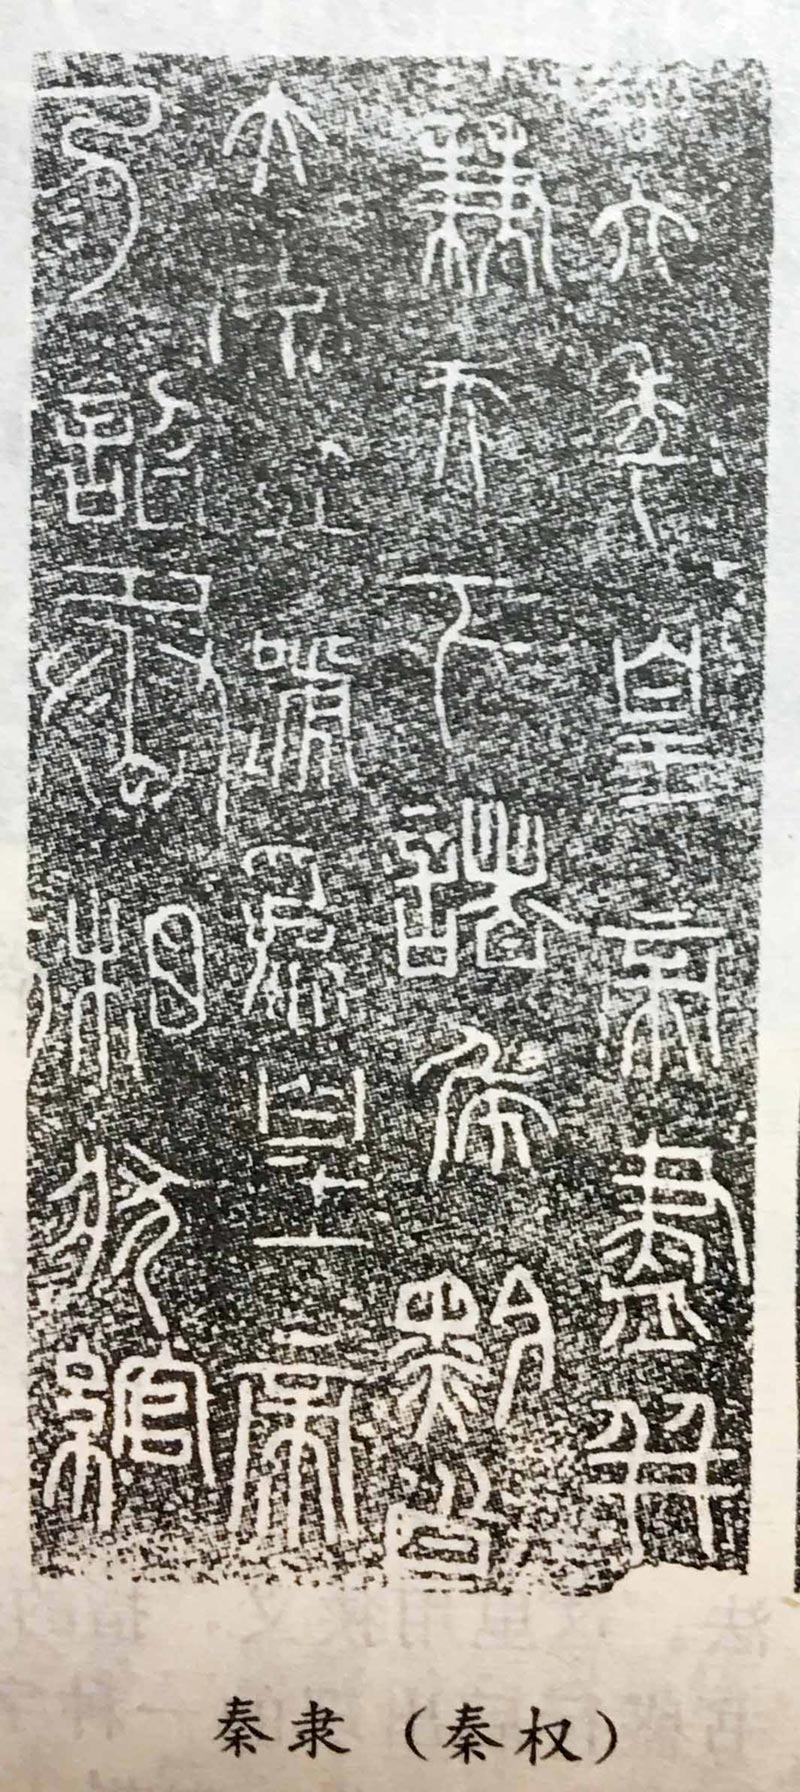 廿六年皇帝盡并
兼天下諸侯黔首
大安立號爲皇帝
乃詔丞相狀綰
秦隶（秦权）